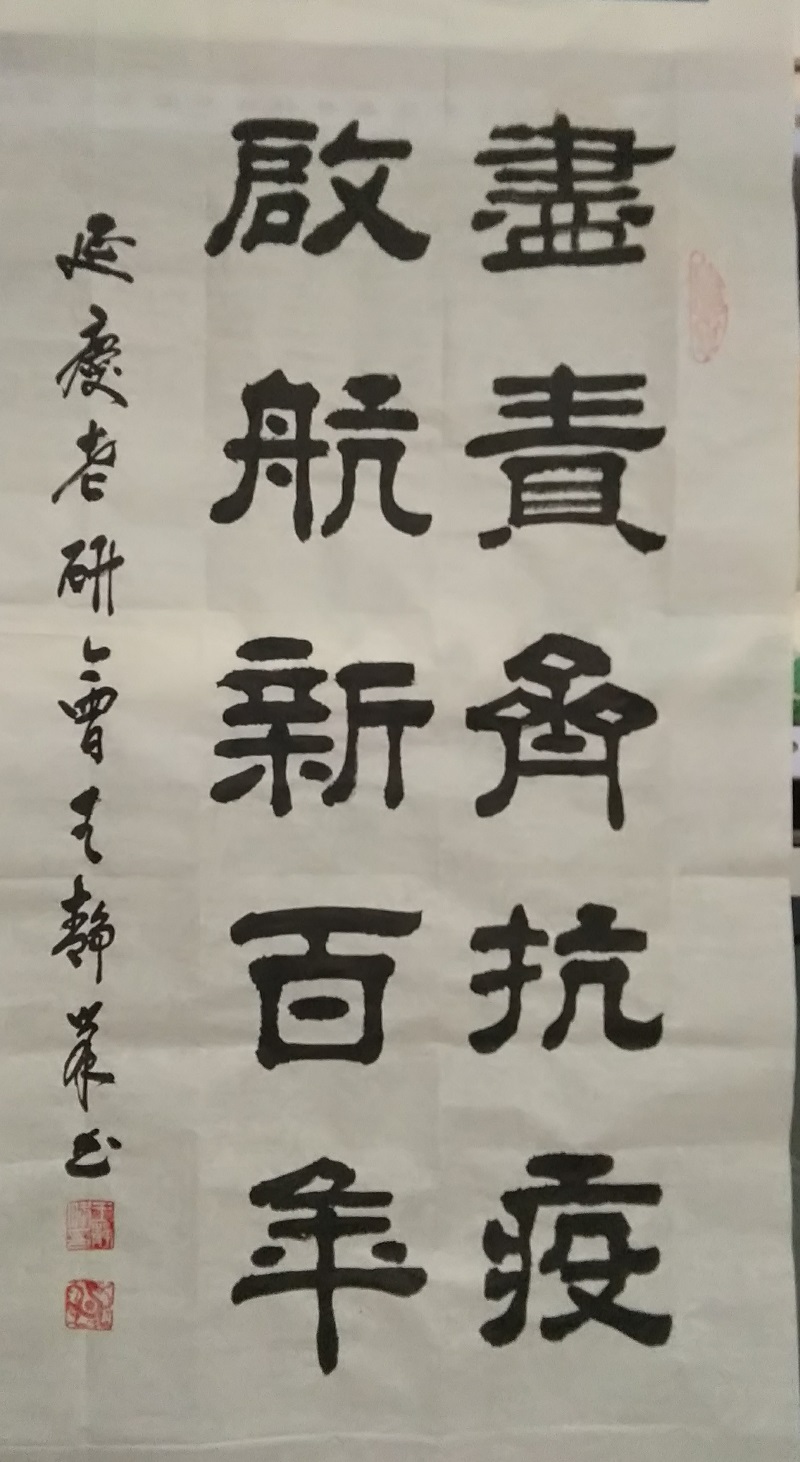 盡責齊抗疫
啟航新百年
延慶老研會王靜業书